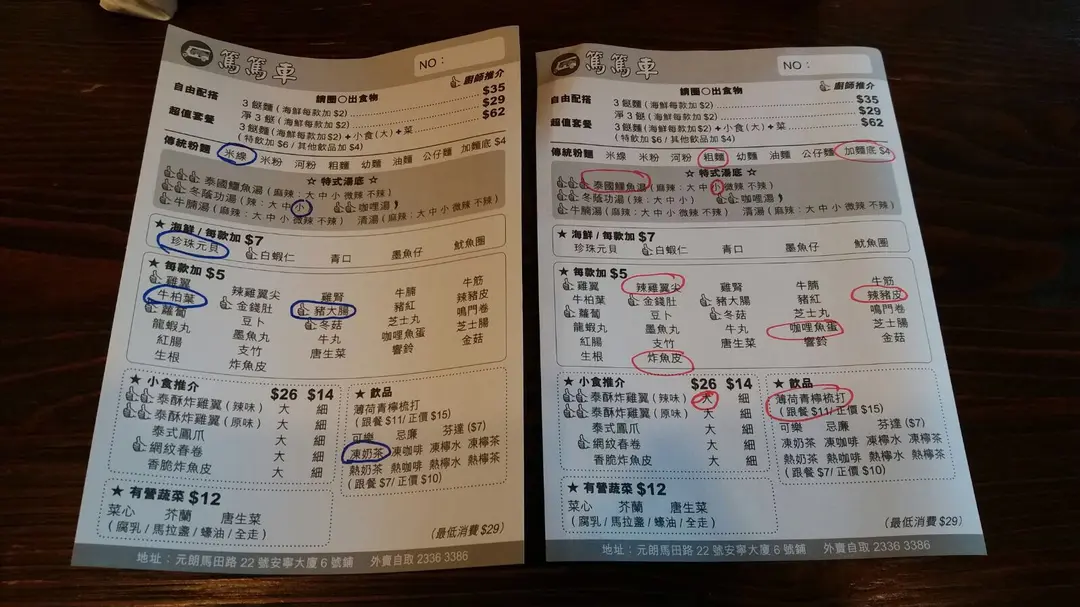 篤篤車
NO：
請圈○出食物
廚師推介
自由配搭
3 餸麵 (海鮮每款加 $2) $35
淨 3 餸 (海鮮每款加 $2) $29
超值套餐
3 餸麵 (海鮮每款加 $2) + 小食 (大) + 菜 $62
(特飲加 $6 / 其他飲品加 $4)
傳統粉麵 米線 米粉 河粉 粗麵 幼麵 油麵 公仔麵 加麵底 $4
☆ 特式湯底 ☆
泰國鱷魚湯 (麻辣：大 中 小 微辣 不辣)
冬蔭功湯 (辣：大 中 小) 咖哩湯
牛腩湯 (麻辣：大 中 小 微辣 不辣) 清湯 (麻辣：大 中 小 微辣 不辣)
★ 海鮮 / 每款加 $7
珍珠元貝 白蝦仁 青口 墨魚仔 魷魚圈
★ 每款加 $5
雞翼 辣雞翼尖 雞腎 牛腩 牛筋
牛柏葉 金錢肚 豬大腸 豬紅 辣豬皮
蘿蔔 豆卜 冬菇 芝士丸 鳴門卷
龍蝦丸 墨魚丸 牛丸 咖哩魚蛋 芝士腸
紅腸 支竹 唐生菜 響鈴 金菇
生根 炸魚皮
★ 小食推介 $26 $14
泰酥炸雞翼 (辣味) 大 細
泰酥炸雞翼 (原味) 大 細
泰式鳳爪 大 細
網紋春卷 大 細
香脆炸魚皮 大 細
★ 飲品
薄荷青檸梳打
(跟餐 $11/ 正價 $15)
可樂 忌廉 芬達 ($7)
凍奶茶 凍咖啡 凍檸水 凍檸茶
熱奶茶 熱咖啡 熱檸水 熱檸茶
(跟餐 $7/ 正價 $10)
★ 有營蔬菜 $12
菜心 芥蘭 唐生菜
(腐乳 / 馬拉盞 / 蠔油 / 全走)
(最低消費 $29)
地址：元朗馬田路 22 號安寧大廈 6 號鋪 外賣自取 2336 3386
篤篤車
NO：
請圈○出食物
廚師推介
自由配搭
3 餸麵 (海鮮每款加 $2) $35
淨 3 餸 (海鮮每款加 $2) $29
超值套餐
3 餸麵 (海鮮每款加 $2) + 小食 (大) + 菜 $62
(特飲加 $6 / 其他飲品加 $4)
傳統粉麵 米線 米粉 河粉 粗麵 幼麵 油麵 公仔麵 加麵底 $4
☆ 特式湯底 ☆
泰國鱷魚湯 (麻辣：大 中 小 微辣 不辣)
冬蔭功湯 (辣：大 中 小 微辣 不辣) 咖哩湯
牛腩湯 (麻辣：大 中 小 微辣 不辣) 清湯 (麻辣：大 中 小 微辣 不辣)
★ 海鮮 / 每款加 $7
珍珠元貝 白蝦仁 青口 墨魚仔 魷魚圈
★ 每款加 $5
雞翼 辣雞翼尖 雞腎 牛腩 牛筋
牛柏葉 金錢肚 豬大腸 豬紅 辣豬皮
蘿蔔 豆卜 冬菇 芝士丸 鳴門卷
龍蝦丸 墨魚丸 牛丸 咖哩魚蛋 芝士腸
紅腸 支竹 唐生菜 響鈴 金菇
生根 炸魚皮
★ 小食推介 $26 $14
泰酥炸雞翼 (辣味) 大 細
泰酥炸雞翼 (原味) 大 細
泰式鳳爪 大 細
網紋春卷 大 細
香脆炸魚皮 大 細
★ 飲品
薄荷青檸梳打
(跟餐 $11/ 正價 $15)
可樂 忌廉 芬達 ($7)
凍奶茶 凍咖啡 凍檸水 凍檸茶
熱奶茶 熱咖啡 熱檸水 熱檸茶
(跟餐 $7/ 正價 $10)
★ 有營蔬菜 $12
菜心 芥蘭 唐生菜
(腐乳 / 馬拉盞 / 蠔油 / 全走)
(最低消費 $29)
地址：元朗馬田路 22 號安寧大廈 6 號鋪 外賣自取 2336 3386